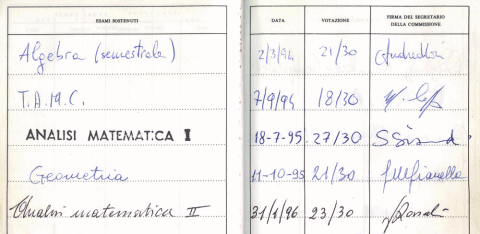 ESAMI SOSTENUTI DATA VOTAZIONE FIRMA DEL SEGRETARIO
DELLA COMMISSIONE
Algebra (semestrale) 2/3/94 21/30
T.A.M.C. 7/9/94 18/30
ANALISI MATEMATICA I 18-7-95 27/30
Geometria 11-10-95 21/30
Analisi matematica II 31/1/96 23/30